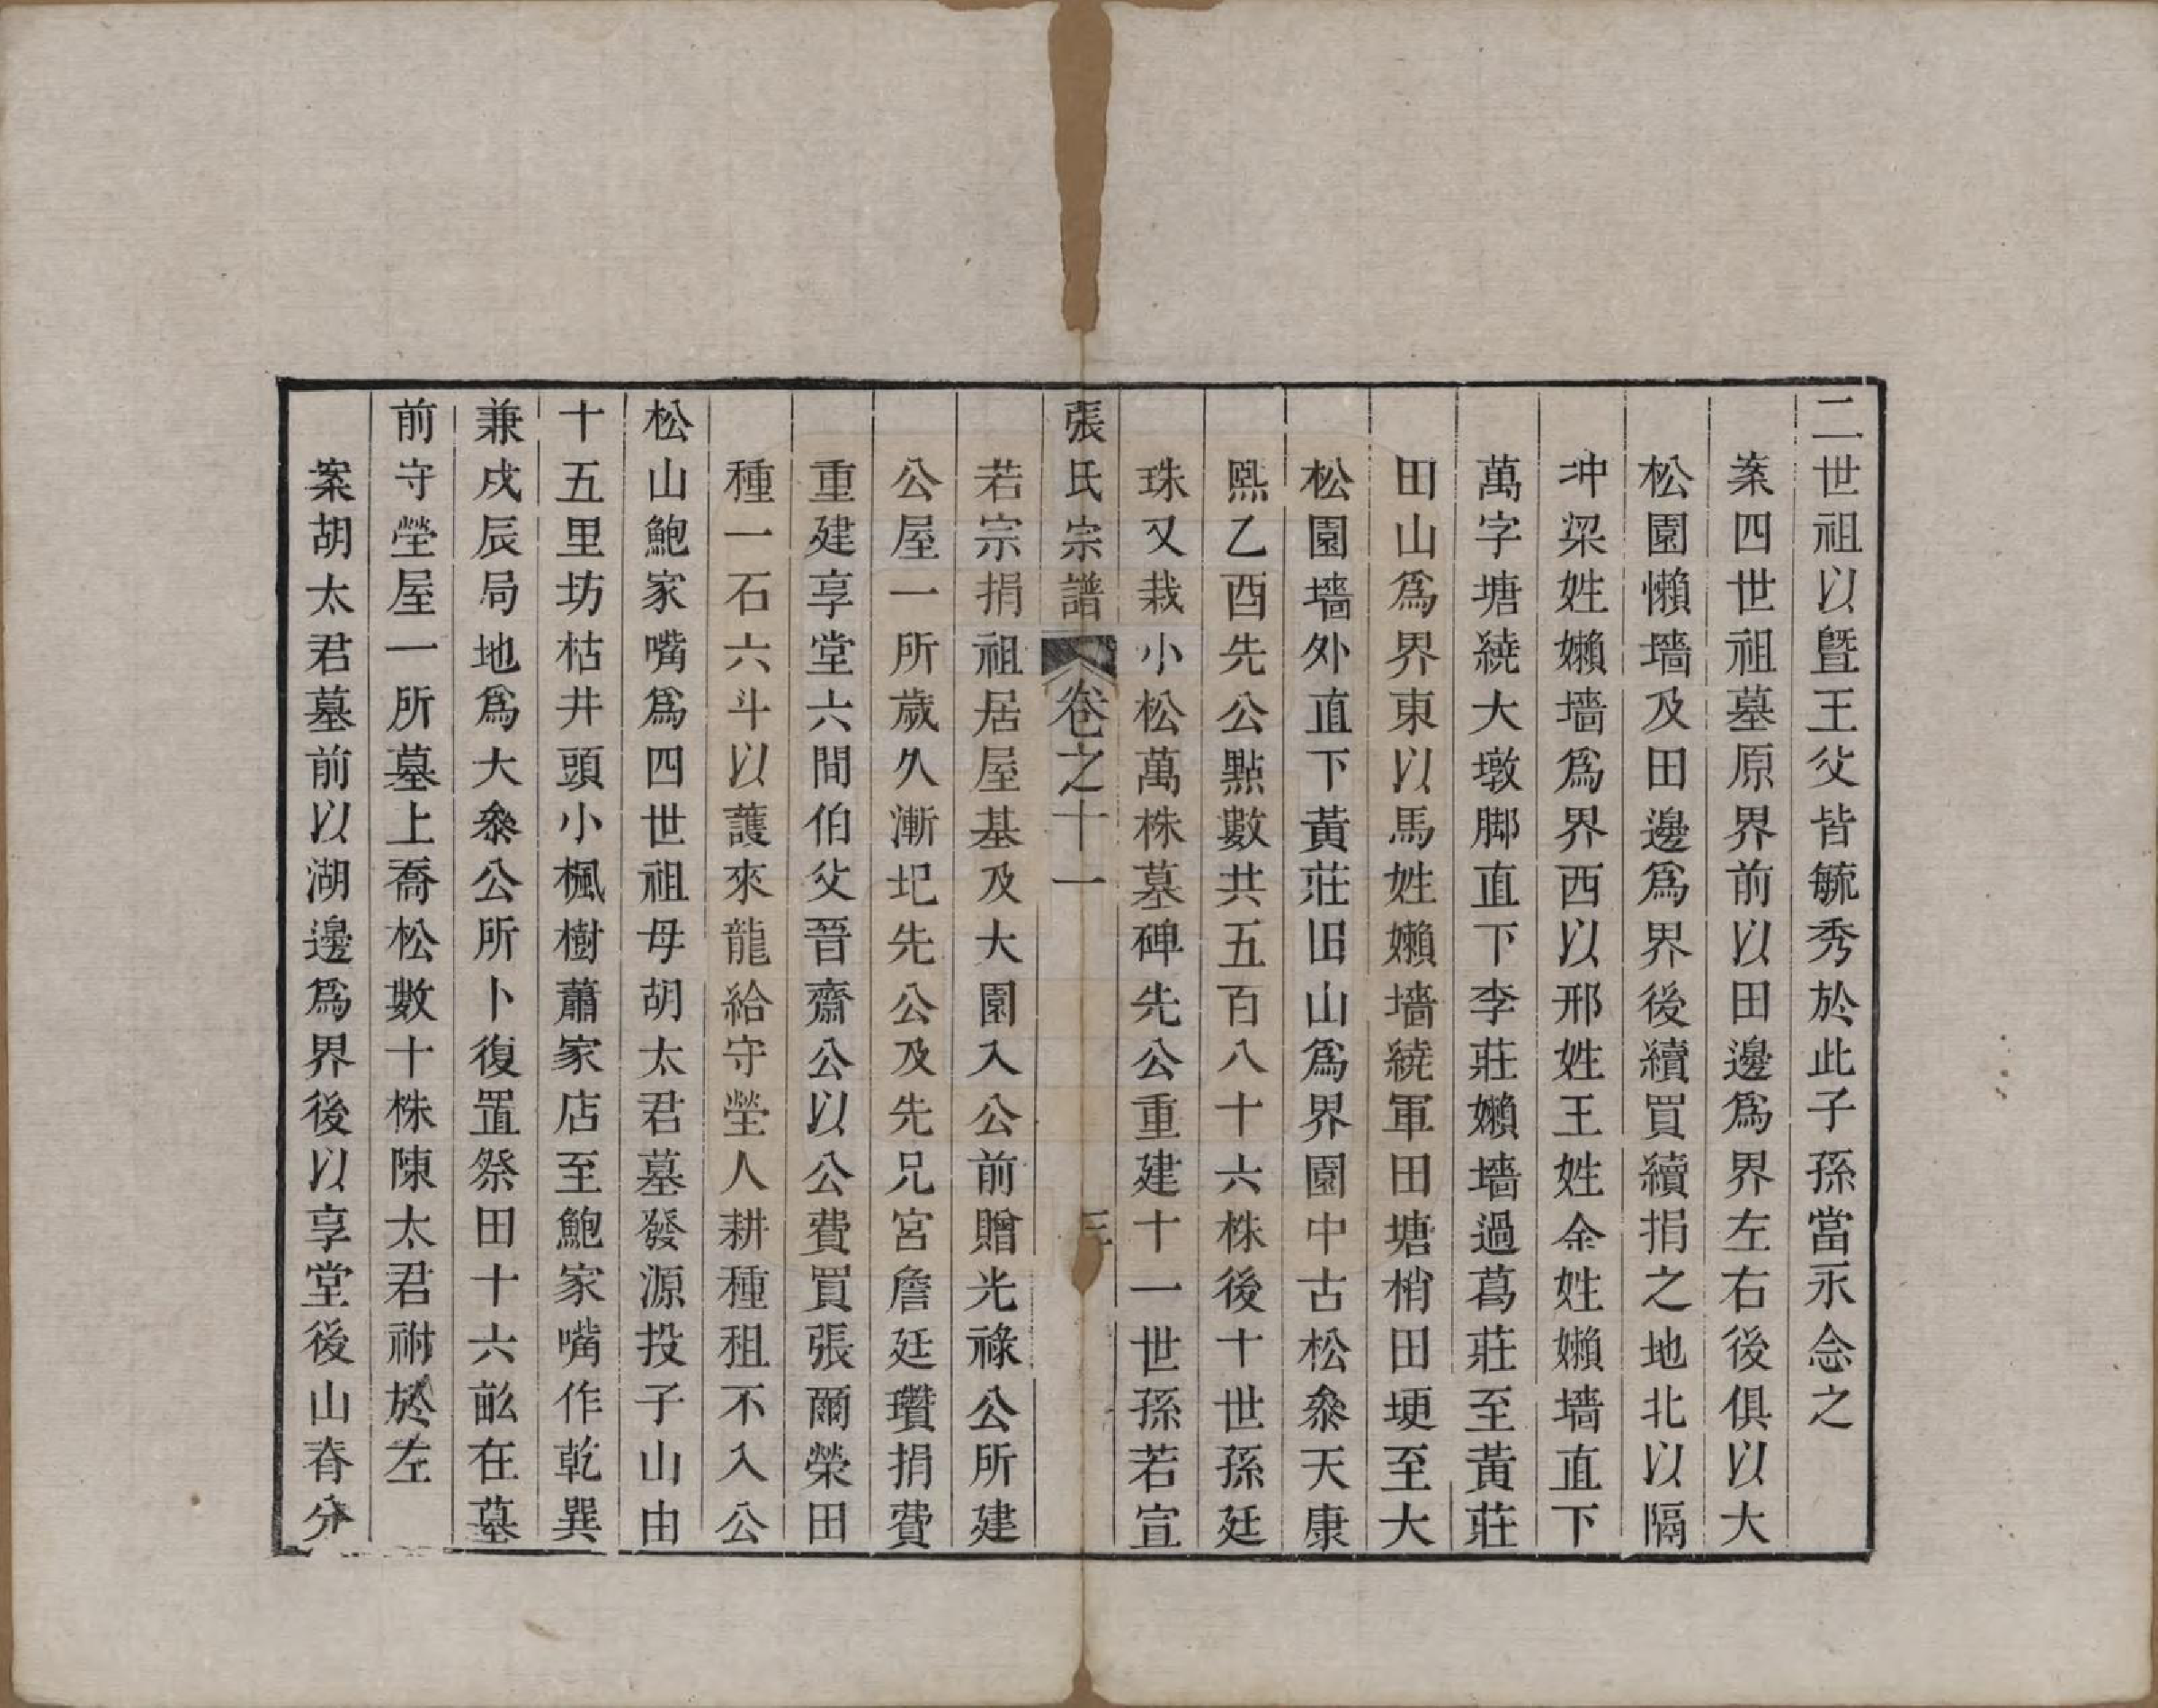 二世祖以曁王父皆毓秀於此子孫當永念之
案四世祖墓原界前以田邊爲界左右後俱以大
松園懶墻及田邊爲界後續買續捐之地北以隔
冲梁姓嬾墻爲界西以邢姓王姓余姓嬾墻直下
萬字塘繞大墩脚直下李莊嬾墻過葛莊至黃莊
田山爲界東以馬姓嬾墻繞軍田塘梢田埂至大
松園墻外直下黃莊旧山爲界園中古松叅天康
熙乙酉先公點數共五百八十六株後十世孫廷
珠又栽小松萬株墓碑先公重建十一世孫若宣
張氏宗譜 卷之十一 三
若宗捐祖居屋基及大園入公前贈光祿公所建
公屋一所歲久漸圯先公及先兄宮詹廷瓚捐費
重建享堂六間伯父晉齋公以公費買張爾榮田
種一石六斗以護來龍給守塋人耕種租不入公
松山鮑家嘴爲四世祖母胡太君墓發源投子山由
十五里坊枯井頭小楓樹蕭家店至鮑家嘴作乾巽
兼戌辰局地爲大叅公所卜復置祭田十六畝在墓
前守塋屋一所墓上喬松數十株陳太君祔於左
案胡太君墓前以湖邊爲界後以享堂後山脊分